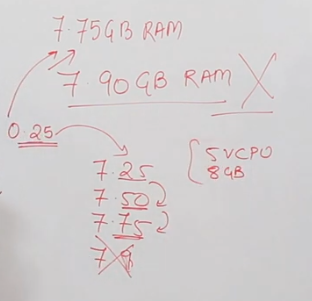 7.75GB RAM
7.90GB RAM
0.25
7.25
7.50
7.75
5 VCPU
8 GB